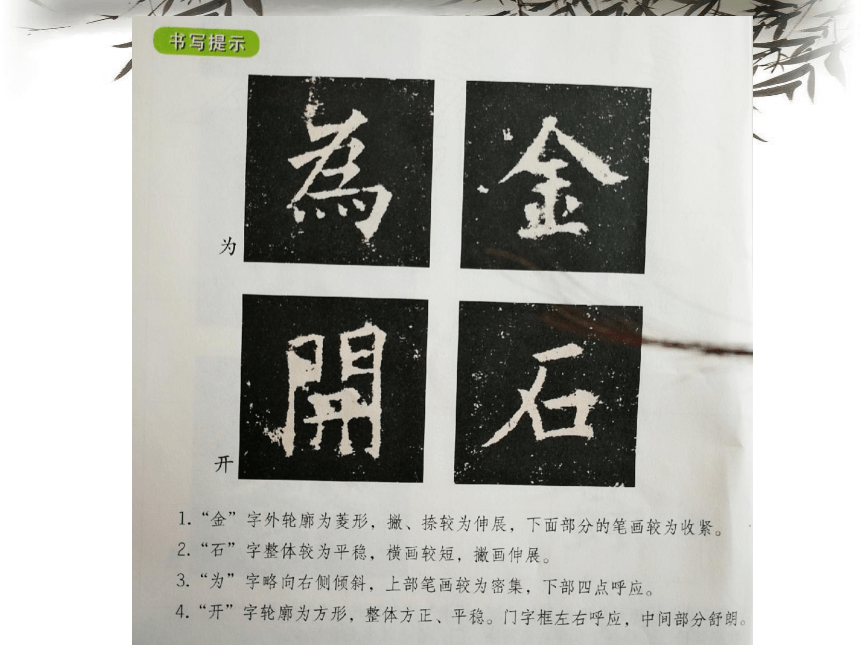 书写提示
為
金
为
開
石
开
1.“金”字外轮廓为菱形，撇、捺较为伸展，下面部分的笔画较为收紧。
2.“石”字整体较为平稳，横画较短，撇画伸展。
3.“为”字略向右侧倾斜，上部笔画较为密集，下部四点呼应。
4.“开”字轮廓为方形，整体方正、平稳。门字框左右呼应，中间部分舒朗。